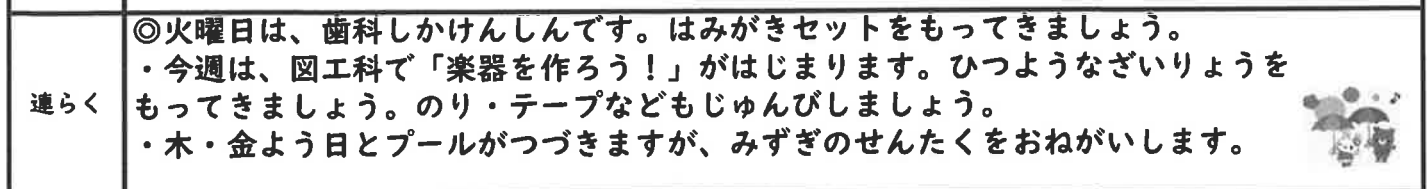 ◎火曜日は、歯科しかけんしんです。はみがきセットをもってきましょう。
・今週は、図工科で「楽器を作ろう！」がはじまります。ひつようなざいりょうを
連らく
もってきましょう。のり・テープなどもじゅんびしましょう。
・木・金よう日とプールがつづきますが、みずぎのせんたくをおねがいします。